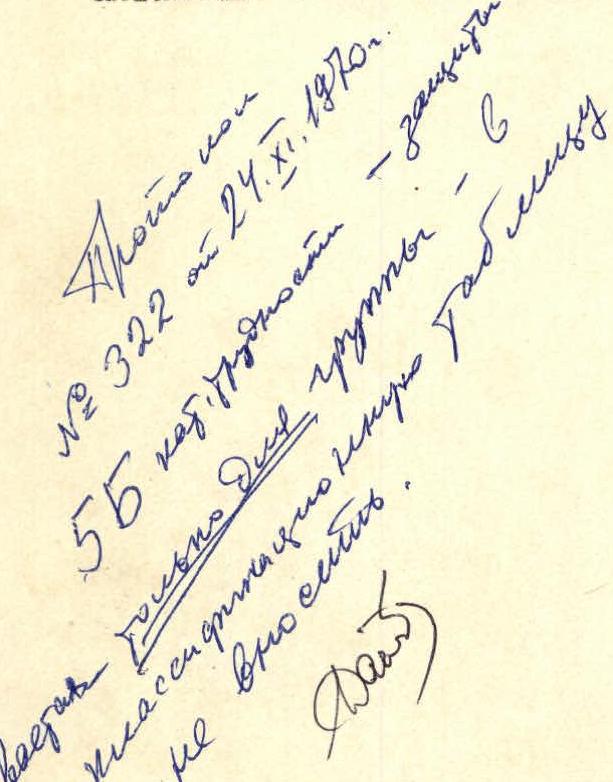 Протокол
№ 322 от 24.XI.1970г.
5Б кат. трудности – защиты
только для группы – в
классификационную таблицу
не вносить.